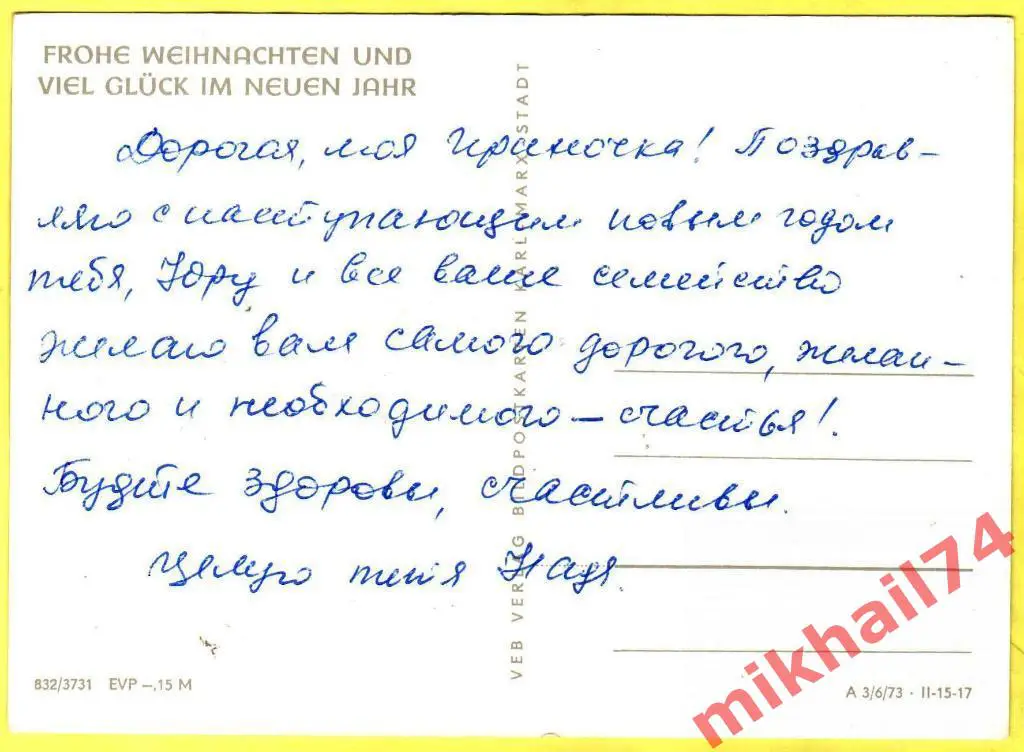 FROHE WEIHNACHTEN UND
VIEL GLÜCK IM NEUEN JAHR
Дорогая, моя Ириночка! Поздрав-
ляю с наступающим новым годом
тебя, Юру и все ваше семейство
желаю вам самого дорогого, желан-
ного и необходимого – счастья!
Будьте здоровы, счастливы.
Целую тетя Надя.
VEB VERLAG BILDPOSTKARTEN KARL-MARX-STADT
832/3731 EVP –,15 M
A 3/6/73 · II-15-17
mikhail74